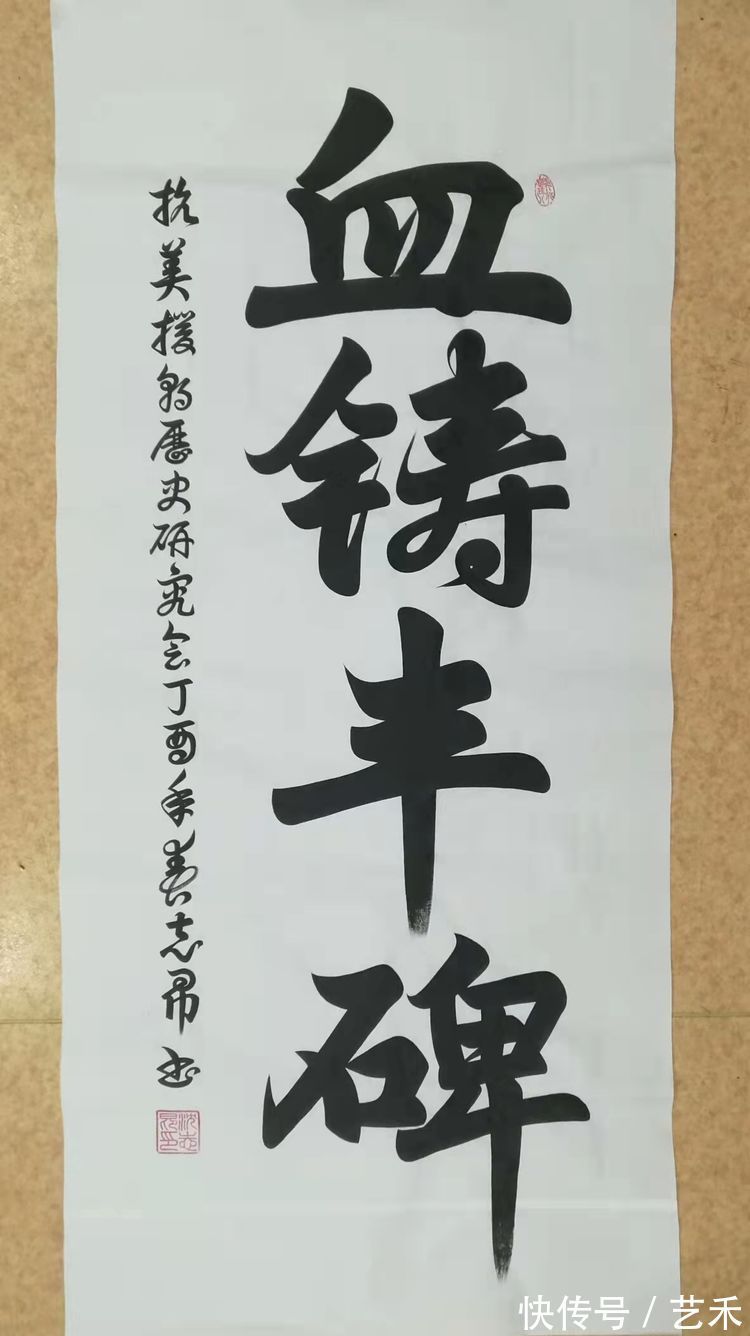 血铸丰碑
抗美援朝歷史研究会丁酉年春志书
快传号 / 艺禾